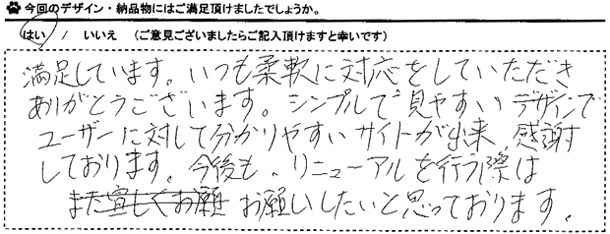 今回のデザイン・納品物にはご満足頂けましたでしょうか。
はい / いいえ (ご意見ございましたらご記入頂けますと幸いです)
満足しています。いつも柔軟に対応をしていただき
ありがとうございます。シンプルで見やすいデザインで
ユーザーに対して分かりやすいサイトが出来、感謝
しております。今後も、リニューアルを行う際は
また宜しくお願 お願いしたいと思っております。